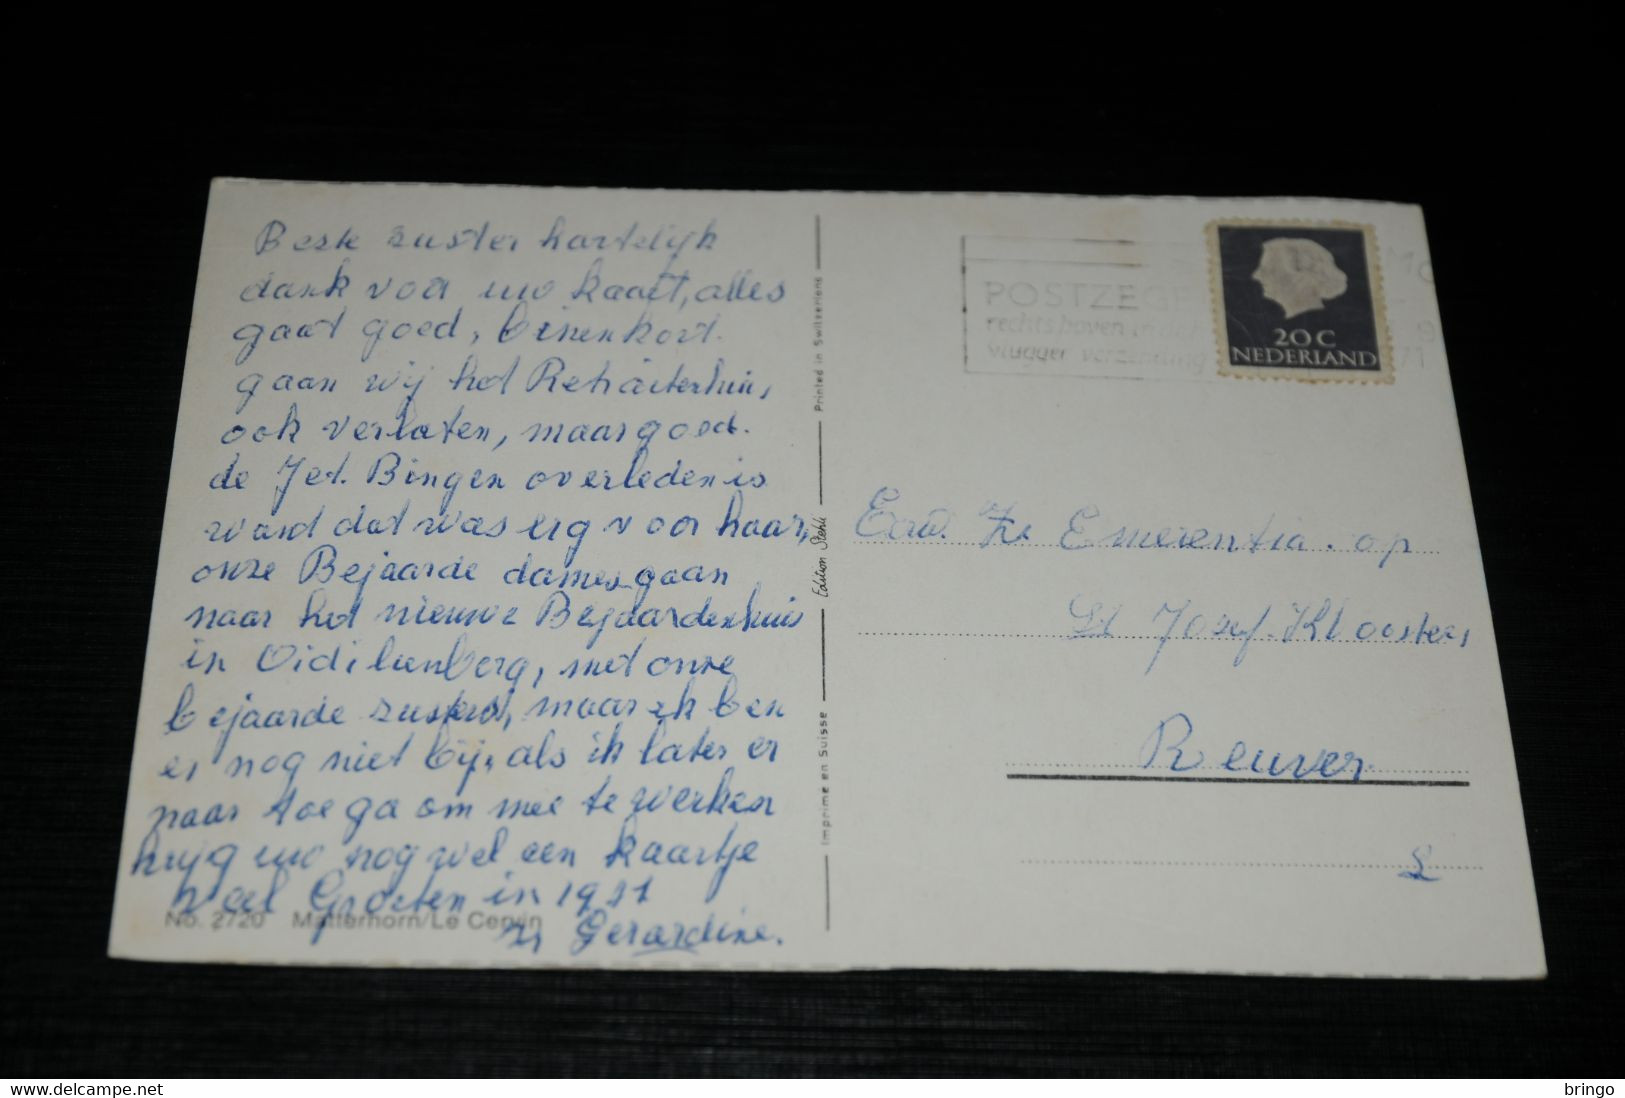 Beste zuster hartelijk
dank voor uw kaart, alles
gaat goed, binenkort.
gaan wij het Retraiterhuis,
ook verlaten, maar goed.
de Jet. Bingen overleden is
want dat was erg voor haar,
onze Bejaarde dames gaan
naar het nieuwe Bejaardenhuis
in Oidilienberg, met onze
bejaarde zusters, maar ik ben
er nog niet bij, als ik later er
naar toe ga om mee te werken
krijg uw nog wel een kaartje
veel Groeten in 1971
zr Gerardine.
No. 2720 Matterhorn/Le Cervin
Printed in Switzerland
Edition Stehli
Imprimé en Suisse
POSTZEGE
rechts boven in de
vlugger verzending
20C
NEDERLAND
Eerw. Zr Emerentia. op
St Jozef. Klooster,
Reuver.
bringo